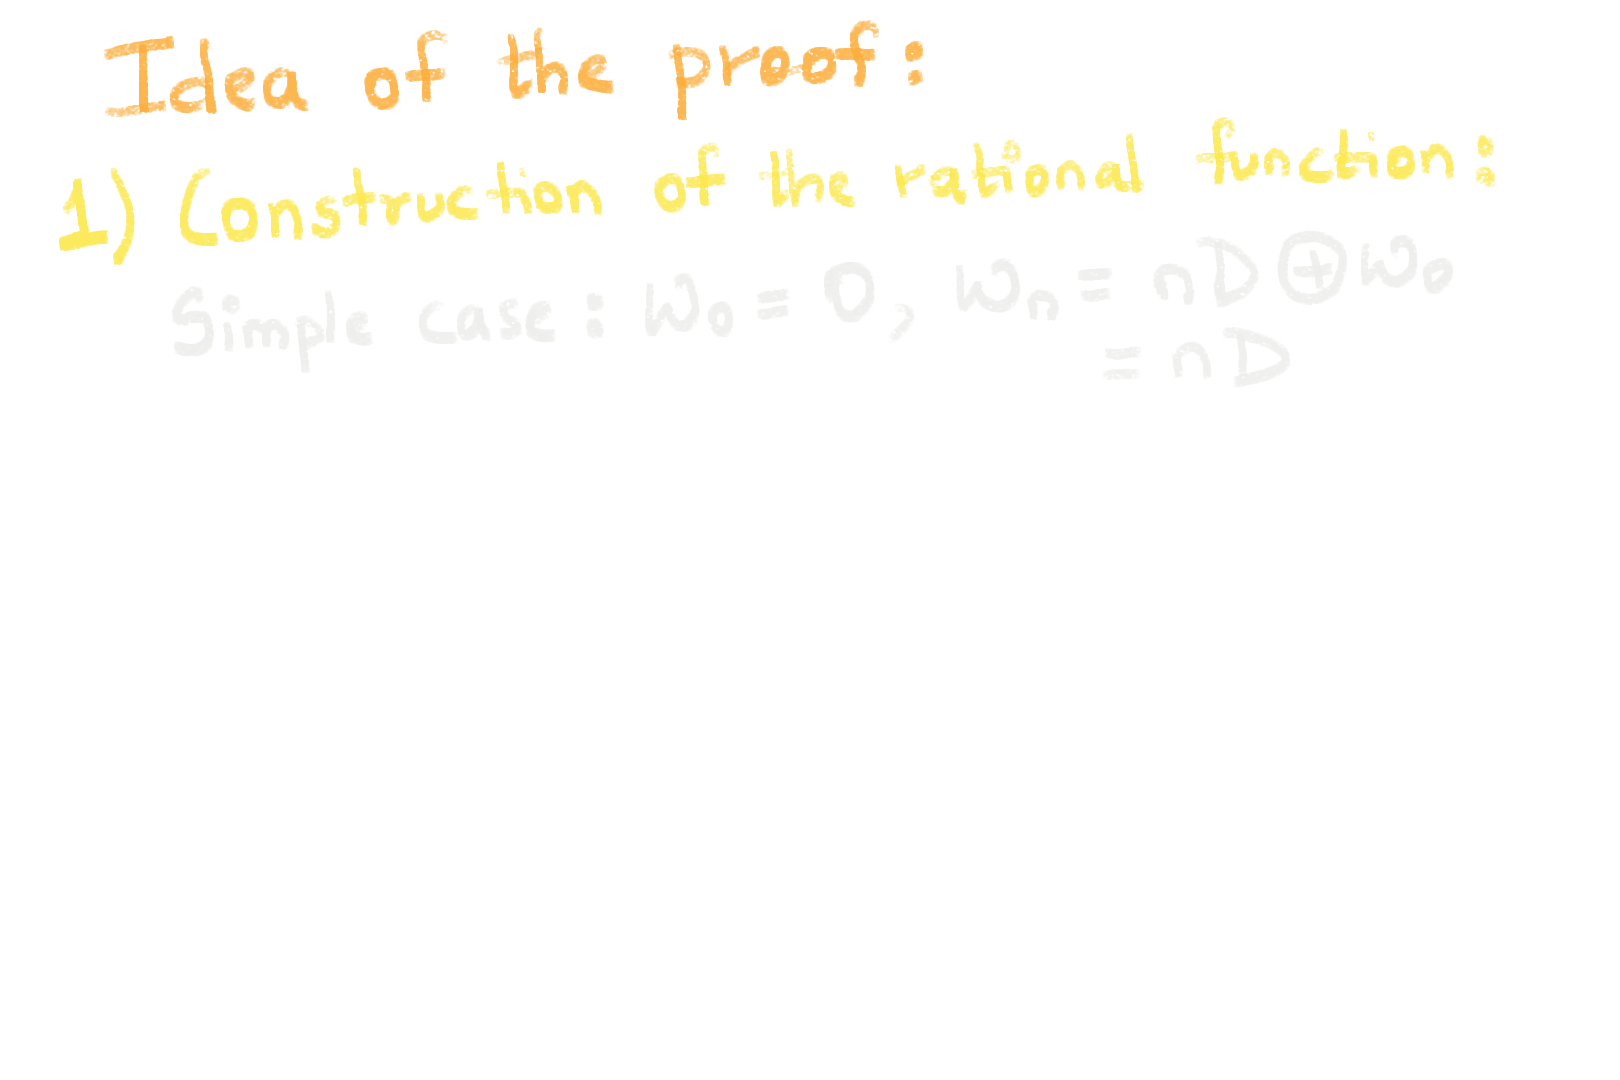 Idea of the proof:
1) Construction of the rational function:
Simple case: W₀ = 0, Wₙ = nD ⊕ W₀
= nD